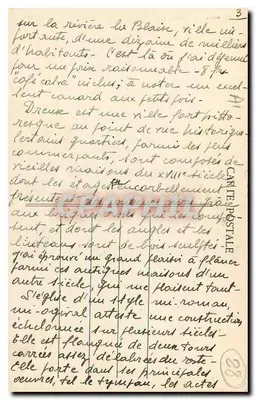 3
sur la rivière la Blaise, ville im-
portante, d'une dizaine de milliers
d'habitants. C'est là où j'ai déjeuné
pour un prix raisonnable - 8 frs
"café calva" inclus; à noter un excel-
lent canard aux petits pois.
Dreux est une ville fort pitto-
resque au point de vue historique.
Certains quartiers, parmi les plus
commerçants, sont composés de
vieilles maisons du XVIIIe siècle
dont les étages encorbellement
sent, et dont les angles et les
linteaux sont de bois sculptés.
J'ai éprouvé un grand plaisir à flâner
parmi ces antiques maisons d'un
autre siècle qui me plaisent tant.
L'église d'un style mi-roman,
mi-ogival atteste une construction
échelonnée sur plusieurs siècles.
Elle est flanquée de deux tours
carrées assez délabrées du reste.
Elle porte dans ses principales
oeuvres, tel le tympan, les actes
CARTE POSTALE